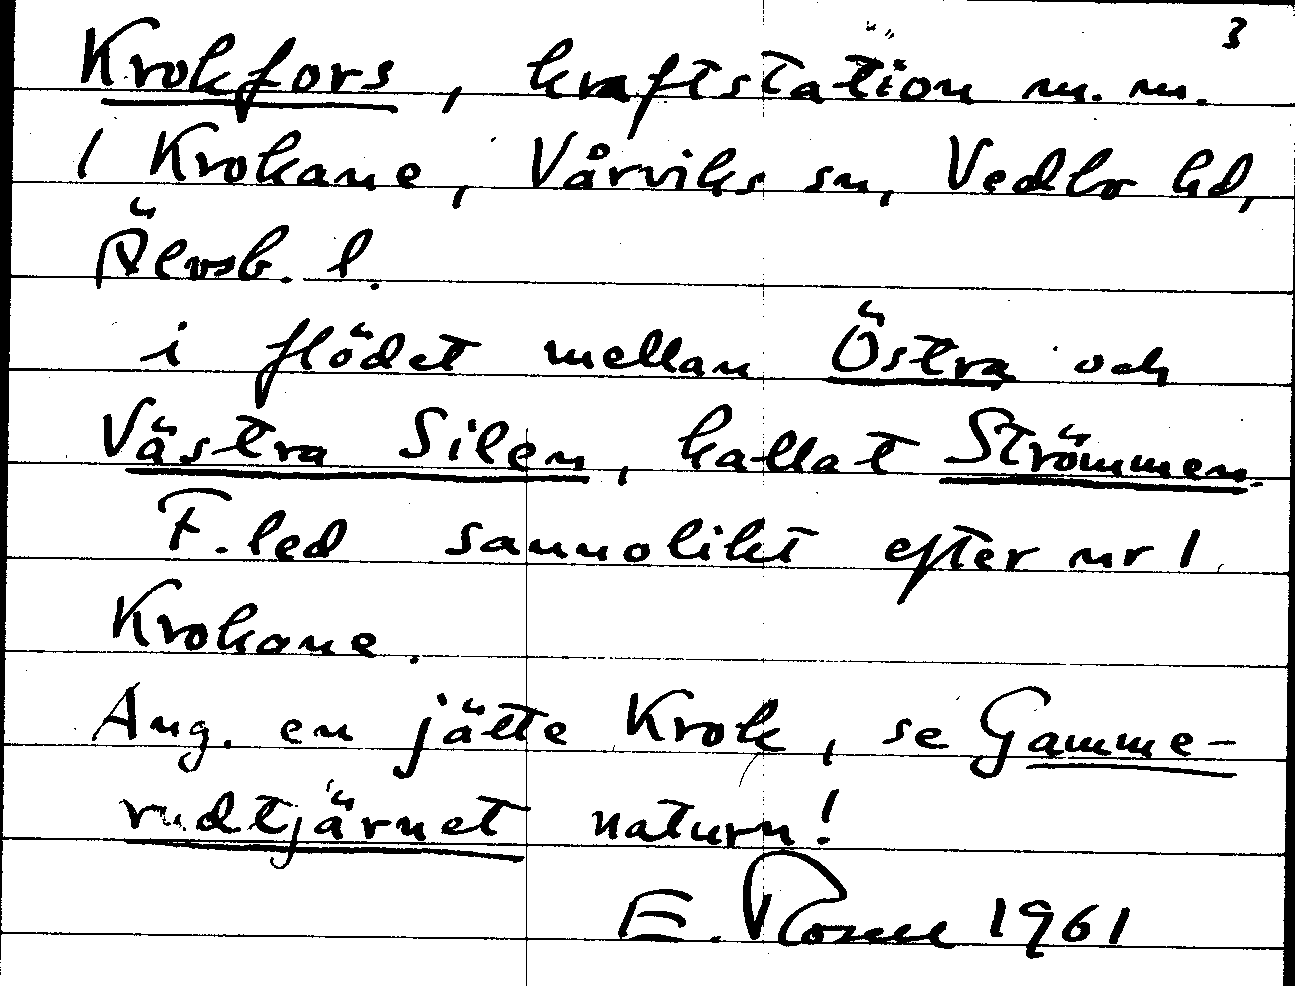 3
Krokfors, kraftstation m. m.
1 Krokane, Vårviks sn, Vedbo hd,
Älvsb. l.
i flödet mellan Östra och
Västra Silen, kallat Strömmen.
F. led sannolikt efter nr 1
Krokane.
Ang. en jätte Krok, se Gamme-
rudtjärnet naturn!
E. 1961